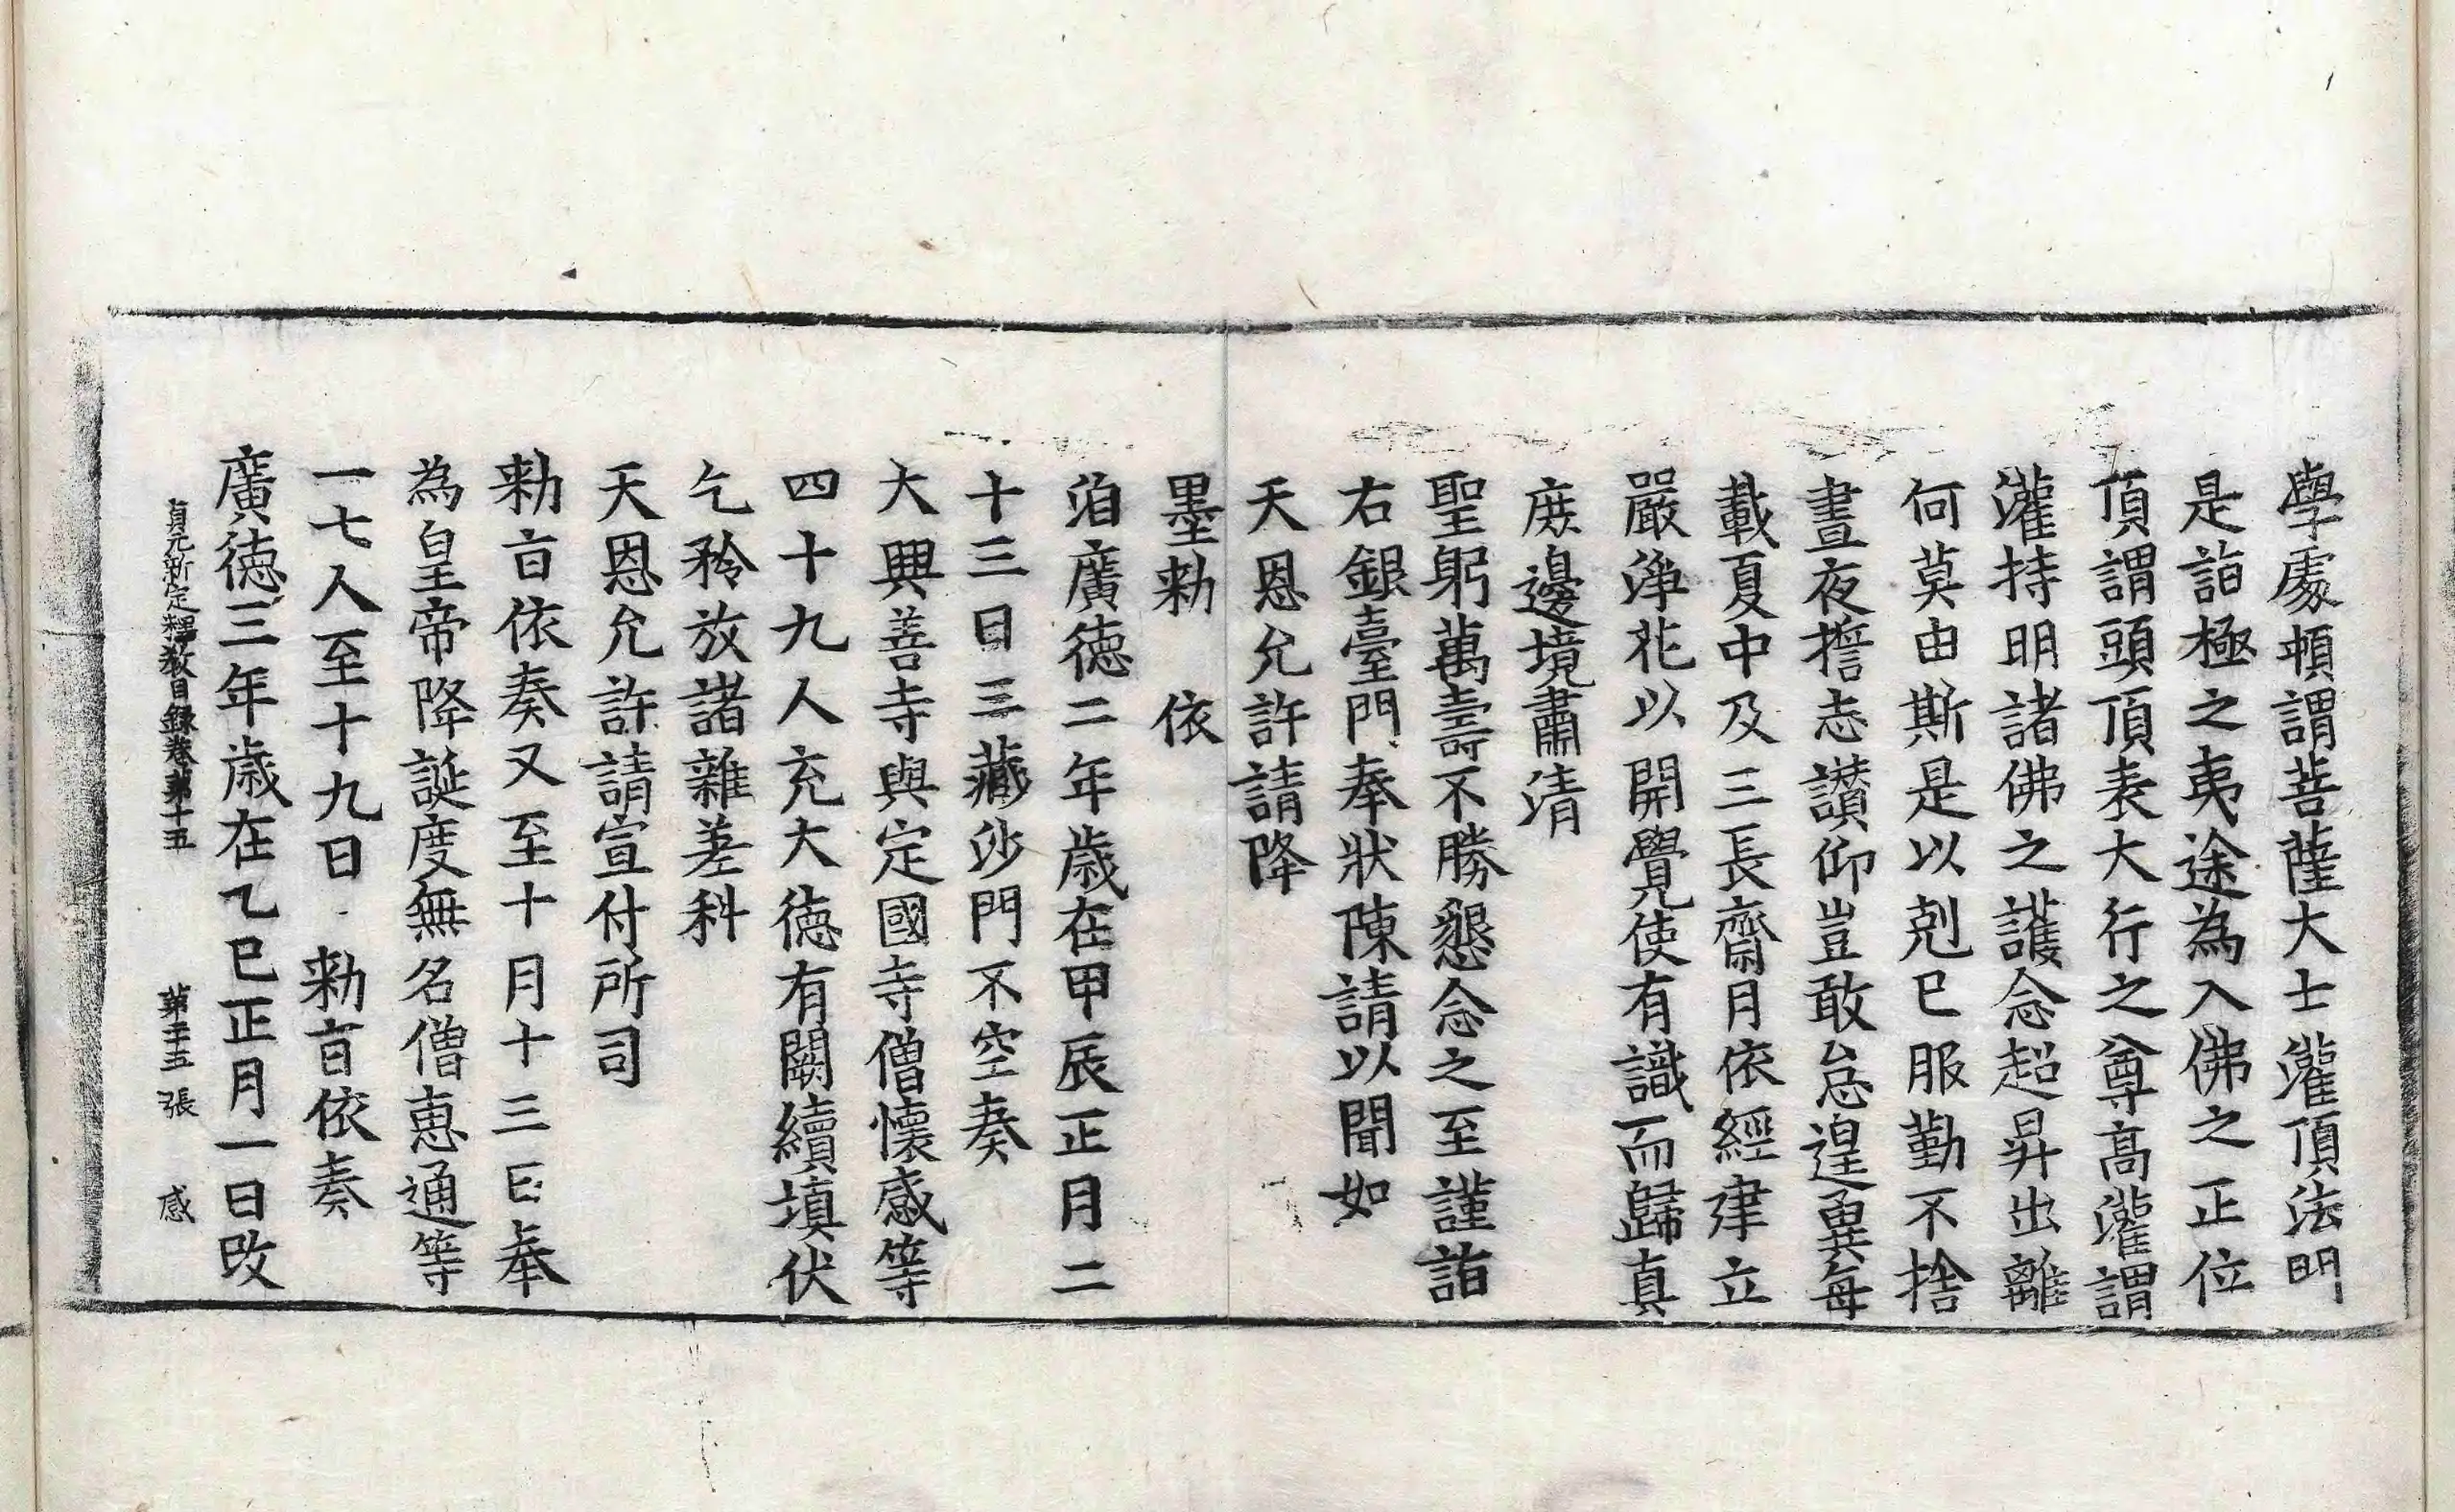 學處頓謂菩薩大士灌頂法門
是詣極之夷途為入佛之正位
頂謂頭頂表大行之尊高灌謂
灌持明諸佛之護念超昇出離
何莫由斯是以剋己服勤不捨
晝夜擔志讃仰豈敢怠遑異每
載夏中及三長齋月依經建立
嚴淨花以開覺使有識而歸真
庶邊境肅清
聖躬萬壽不勝懇念之至謹詣
右銀臺門奉狀陳請以聞如
天恩允許請降
墨勑　依
洎廣德二年歲在甲辰正月二
十三日三藏沙門不空奏
大興善寺與定國寺僧懷感等
四十九人充大德有闕續填伏
乞矜放諸雜差科
天恩允許請宣付所司
勑旨依奏又至十月十三日奉
為皇帝降誕度無名僧惠通等
一七人至十九日　勑旨依奏
廣德三年歲在乙巳正月一日改
貞元新定釋教目録卷第十五　第三十五張　感